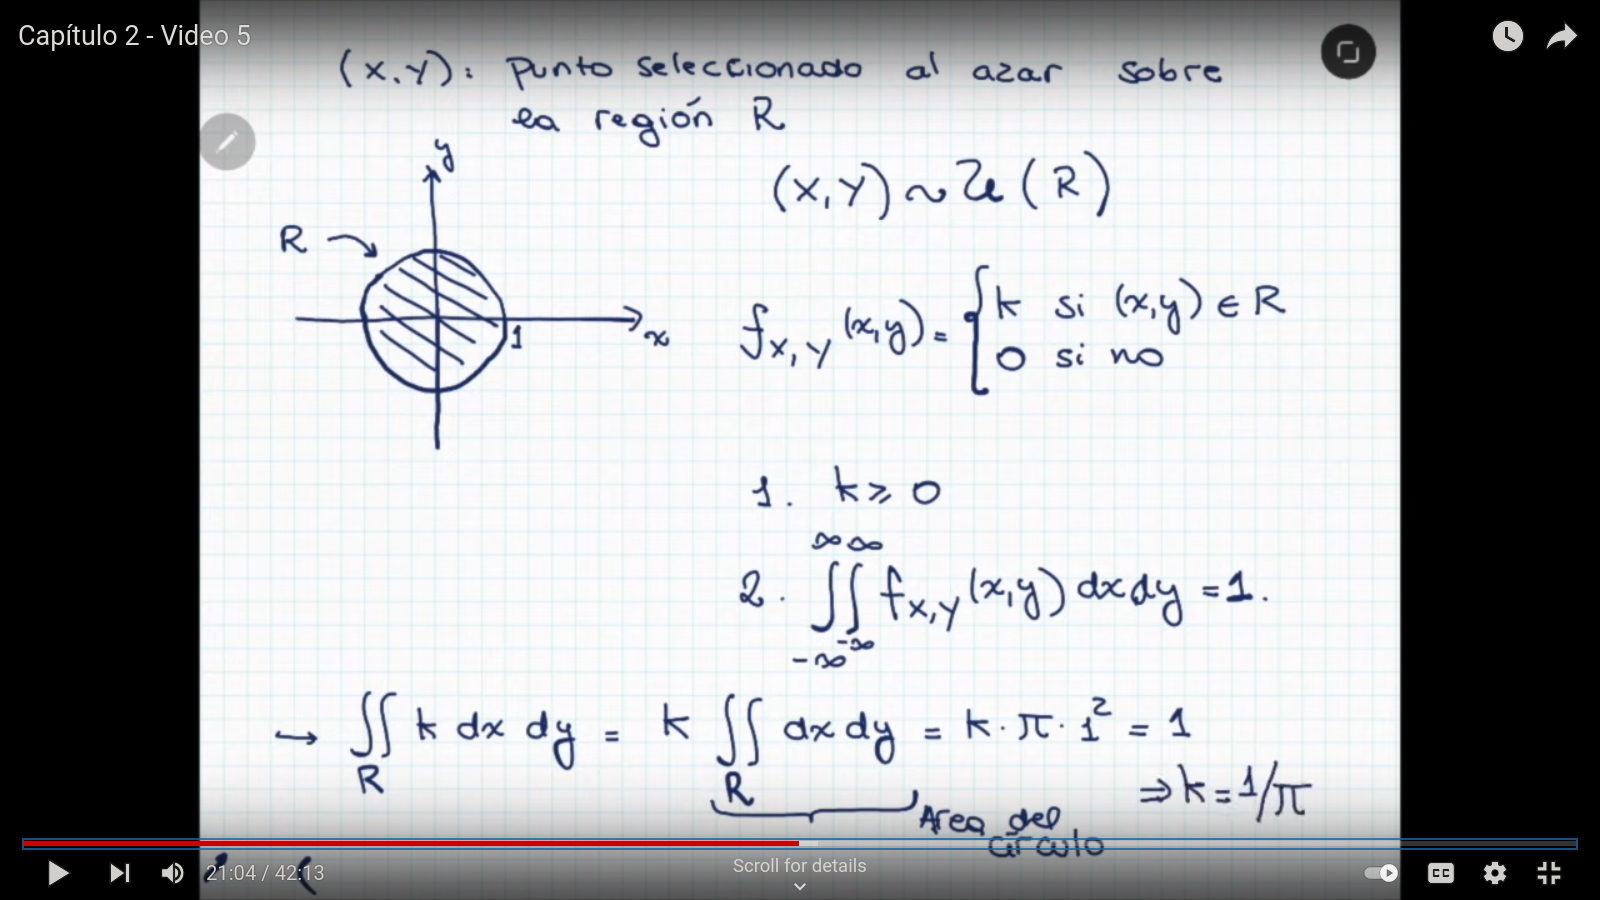 Capítulo 2 - Video 5
(X,Y): Punto seleccionado al azar sobre
la región R
y
(X,Y) ~ U(R)
R
x
1
f_{X,Y}(x,y) = { k si (x,y) ∈ R
0 si no
1. k ≥ 0
2. ∫_{-∞}^{∞} ∫_{-∞}^{∞} f_{X,Y}(x,y) dx dy = 1.
→ ∬_R k dx dy = k ∬_R dx dy = k · π · 1² = 1
⇒ k = 1/π
Area del
círculo
21:04 / 42:13
Scroll for details
CC